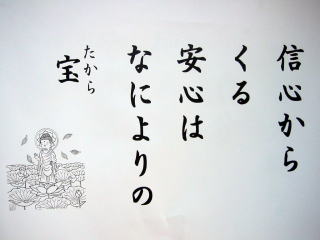 信心から
くる
安心は
なによりの
宝
たから